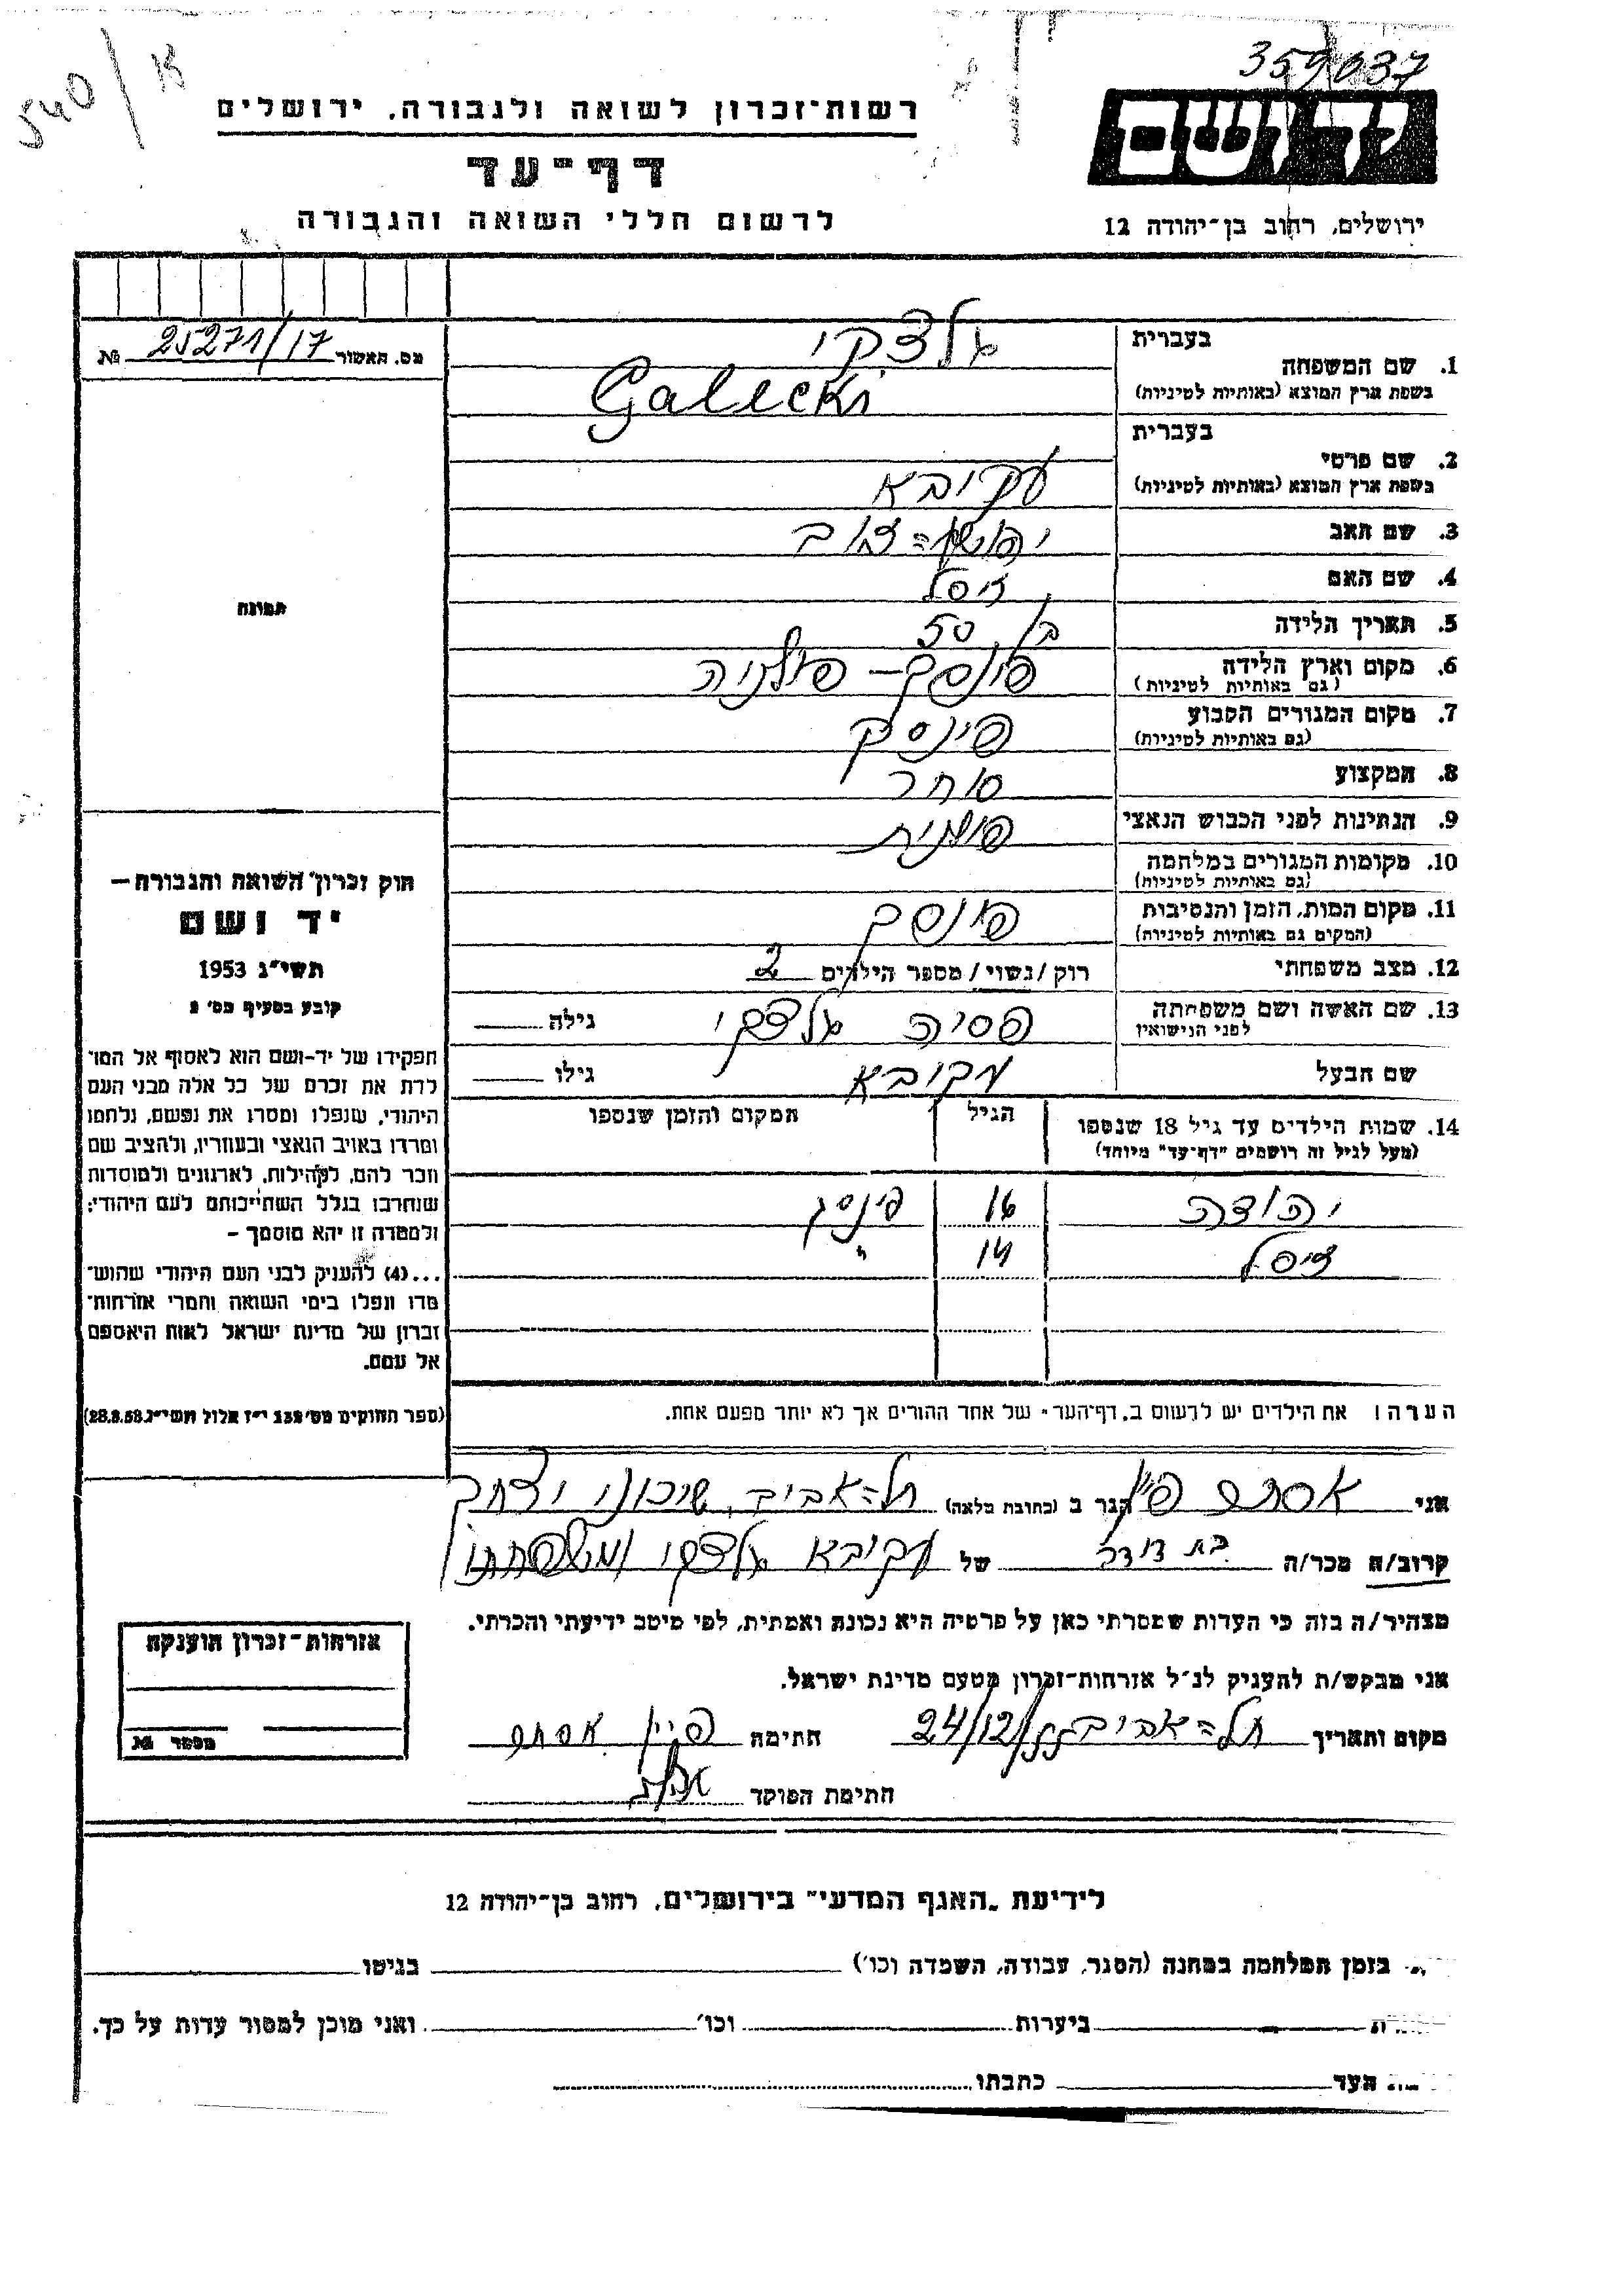 540/א
359037
יד ושם
ירושלים, רחוב בן־יהודה 12
רשות־זכרון לשואה ולגבורה, ירושלים
דף־עד
לרשום חללי השואה והגבורה
מס. האשור 25271/17 №
תמונה
1. שם המשפחה בעברית גלצקי
בשפת ארץ המוצא (באותיות לטיניות) Galecki
2. שם פרטי בעברית
בשפת ארץ המוצא (באותיות לטיניות) עקיבא
3. שם האב יהושע=
4. שם האם זיסל
5. תאריך הלידה בן 50
6. מקום וארץ הלידה (גם באותיות לטיניות) פינסק – פולניה
7. מקום המגורים הקבוע (גם באותיות לטיניות) פינסק
8. המקצוע סוחר
9. הנתינות לפני הכבוש הנאצי פולנית
10. מקומות המגורים במלחמה (גם באותיות לטיניות)
11. מקום המות, הזמן והנסיבות (המקום גם באותיות לטיניות) פינסק
12. מצב משפחתי רוק/נשוי/ מספר הילדים 2
13. שם האשה ושם משפחתה לפני הנישואין פסיה גלצקי גילה
שם הבעל עקיבא גילו
14. שמות הילדים עד גיל 18 שנספו (מעל לגיל זה רושמים "דף־עד" מיוחד) הגיל המקום והזמן שנספו
יהודה 16 פינסק
זיסל 14 "
הערה! את הילדים יש לרשום ב„דף־העד" של אחד ההורים אך לא יותר מפעם אחת.
חוק זכרון השואה והגבורה –
יד ושם
תשי"ג 1953
קובע בסעיף מס' 2
תפקידו של יד-ושם הוא לאסוף אל המו־
לדת את זכרם של כל אלה מבני העם
היהודי, שנפלו ומסרו את נפשם, נלחמו
ומרדו באויב הנאצי ובעוזריו, ולהציב שם
וזכר להם, לקהילות, לארגונים ולמוסדות
שנחרבו בגלל השתייכותם לעם היהודי;
ולמטרה זו יהא מוסמך –
...(4) להעניק לבני העם היהודי שהוש־
מדו ונפלו בימי השואה והמרי אזרחות־
זכרון של מדינת ישראל לאות היאספם
אל עמם.
(ספר החוקים מס' 132 י"ז אלול תשי"ג 28.8.53)
אני אסתר פיין הגר ב (כתובת מלאה) תל=אביב, שיכוני יצחק
קרוב/ה מכר/ה בת דודה של עקיבא גלצקי ומשפחתו
מצהיר/ה בזה כי העדות שמסרתי כאן על פרטיה היא נכונה ואמתית, לפי מיטב ידיעתי והכרתי.
אני מבקש/ת להעניק לנ"ל אזרחות־זכרון מטעם מדינת ישראל.
מקום ותאריך תל=אביב 24/12/55 חתימה פיין אסתר
חתימת הפוקד
אזרחות־זכרון הוענקה
מספר №
לידיעת „האגף המדעי" בירושלים, רחוב בן־יהודה 12
בזמן המלחמה במחנה (הסגר, עבודה, השמדה וכו') בגיטו
ביערות וכו' ואני מוכן למסור עדות על כך.
העד כתבתו